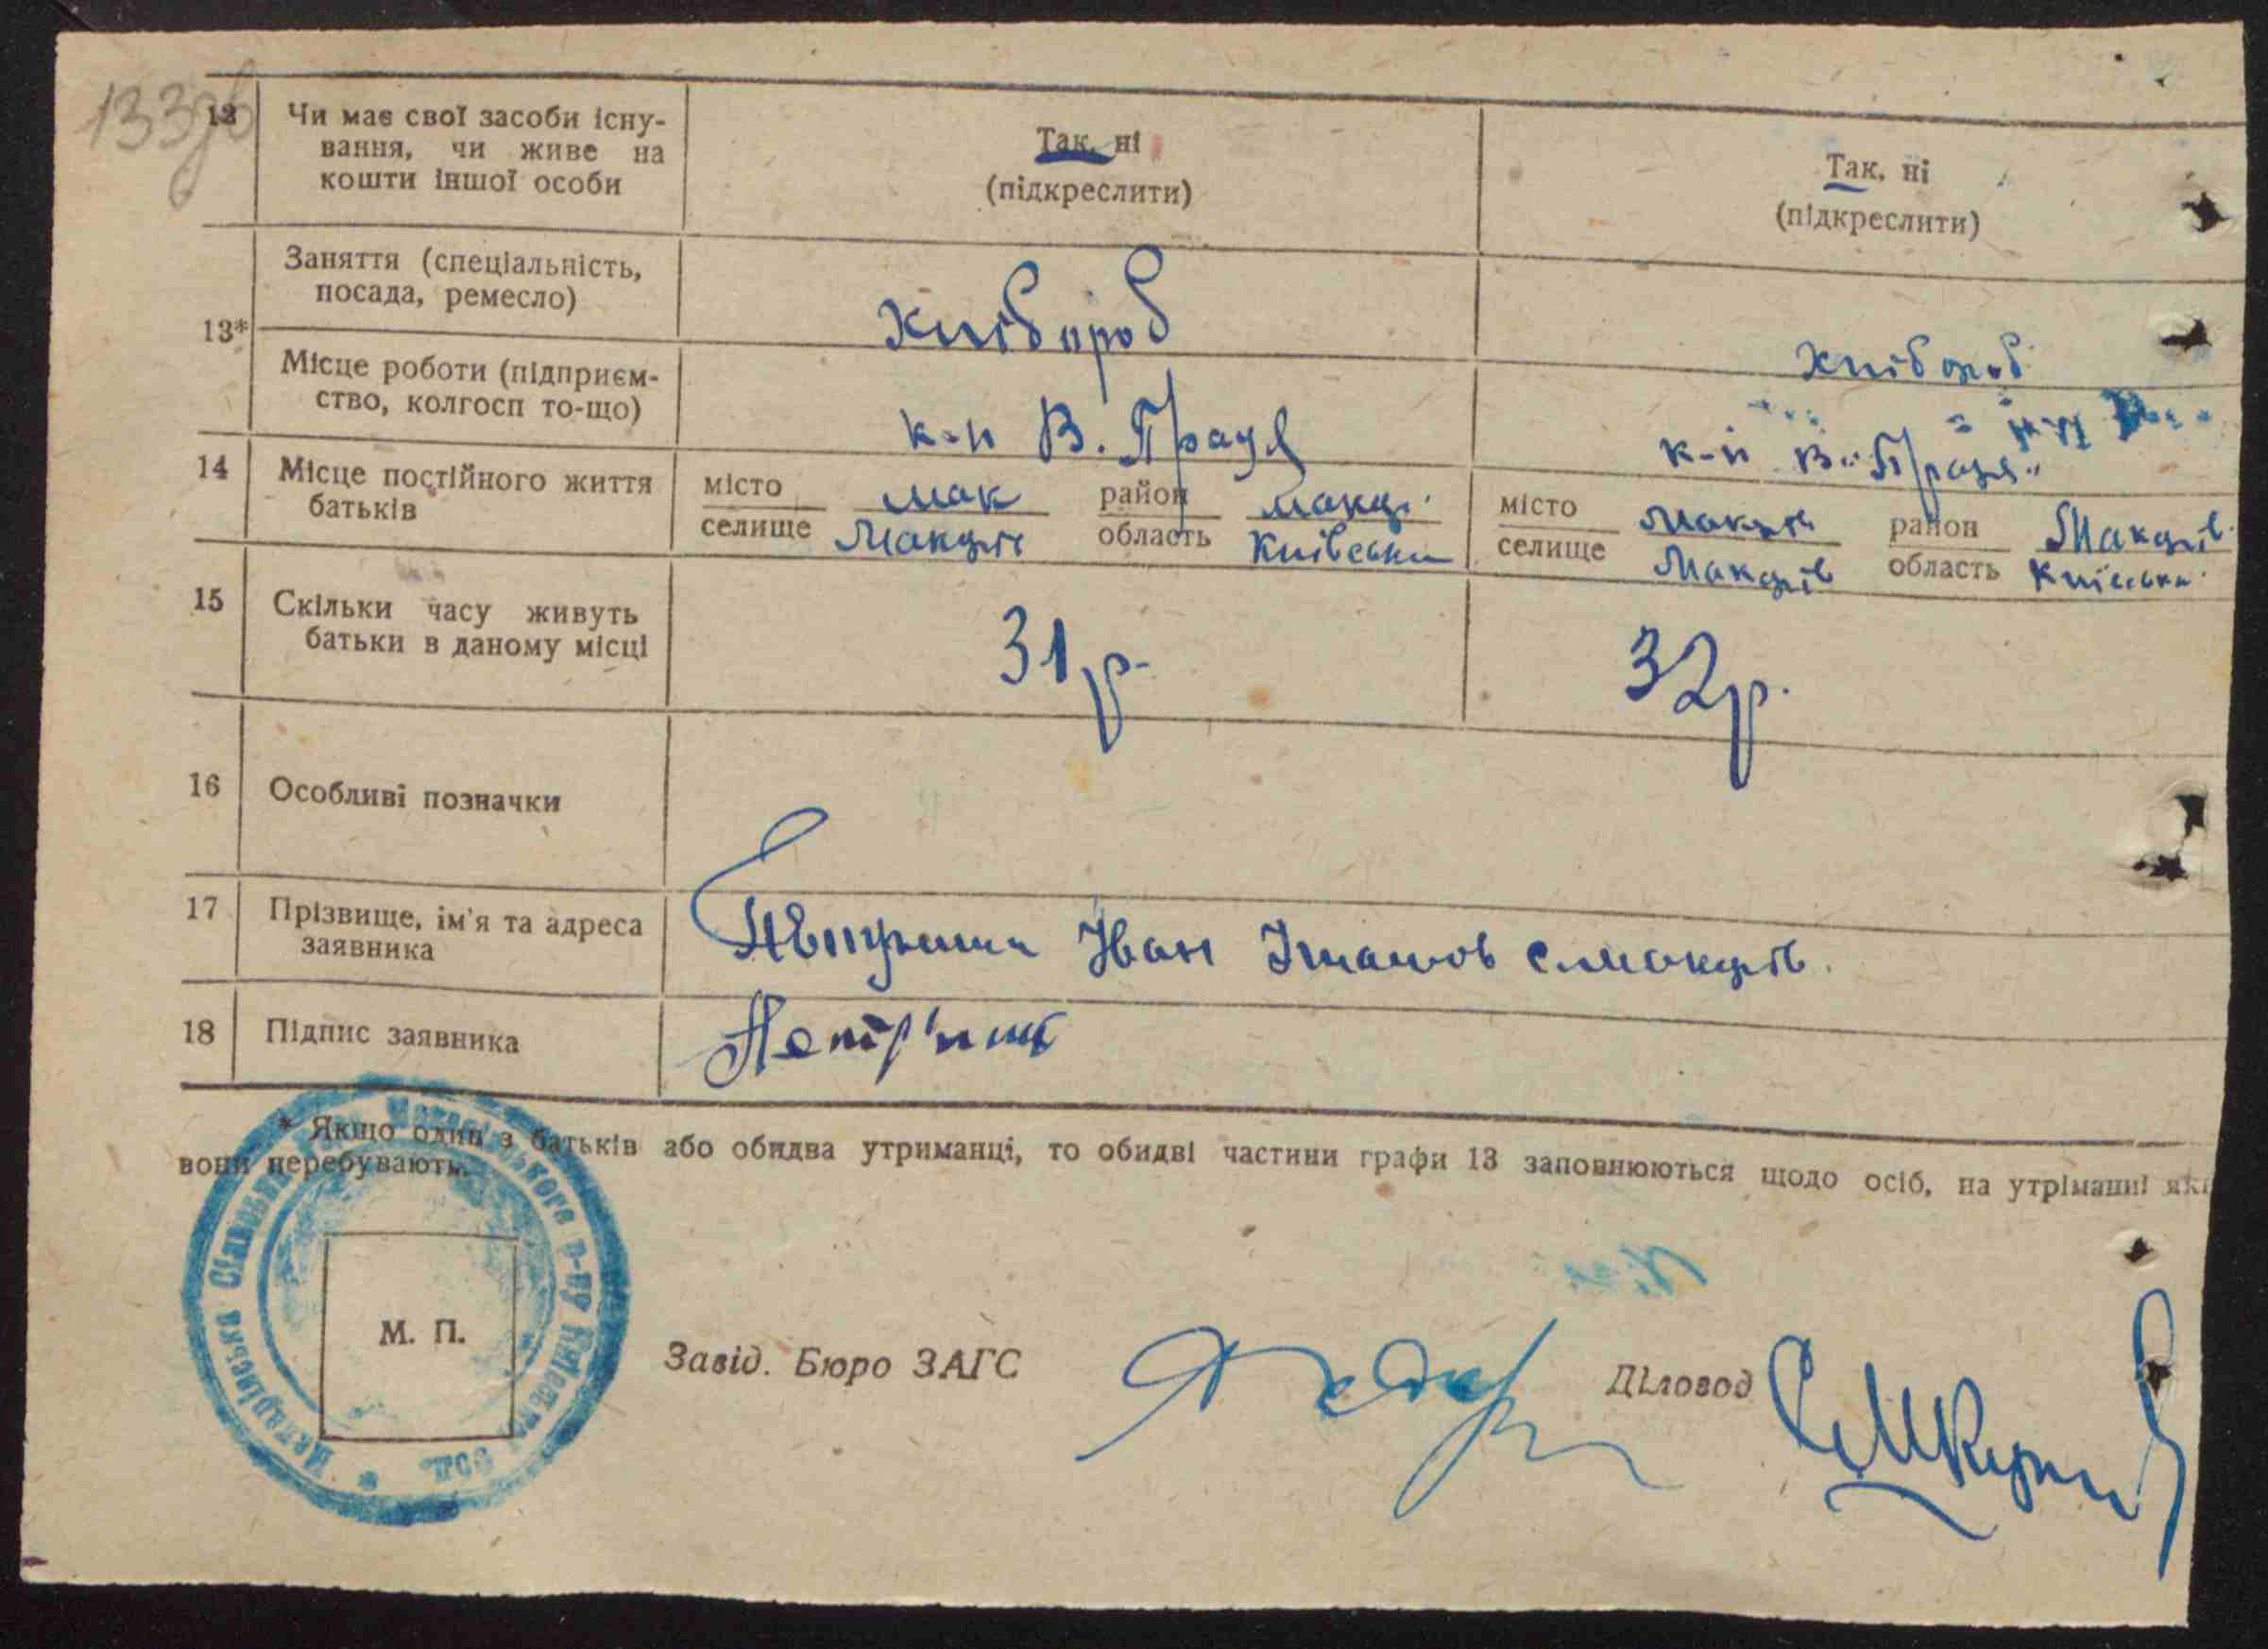 133зв
12 Чи має свої засоби існу-
вання, чи живе на
кошти іншої особи
Так, ні
(підкреслити)
Так, ні
(підкреслити)
13*
Заняття (спеціальність,
посада, ремесло)
хлібороб
хлібороб
Місце роботи (підприєм-
ство, колгосп то-що)
к-п В. Праця
к-п В. "Праця"
14 Місце постійного життя
батьків
місто
селище Макарів
район
область Київська
місто Макарів
селище Макарів
район Макарів.
область Київська
15 Скільки часу живуть
батьки в даному місці
31 р.
32 р.
16 Особливі позначки
17 Прізвище, ім'я та адреса
заявника
Іван с. Макарів.
18 Підпис заявника
* Якщо один з батьків або обидва утриманці, то обидві частини графи 13 заповнюються щодо осіб, на утріманні які
вони перебувають.
М. П.
Завід. Бюро ЗАГС
Діловод